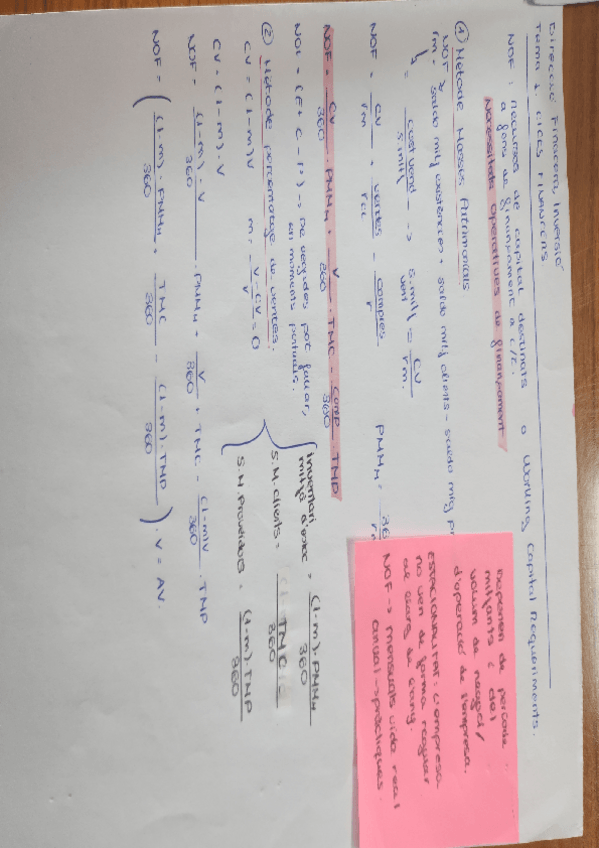 Direcció Financera, Inversió
Tema 1. CICLES FINANCERS
NOF: recursos de capital destinats o Working Capital Requeriments.
a fons de finançament a c/t.
Necessitats Operatives de finançament
① Mètode Masses Patrimonials
NOF = saldo mitj existències + saldo mitj clients - saldo mitj pr
rm = cost venda / s. mitj -> s. mitj = CV / rm.
NOF = CV / rm + ventes / rcc - compres / r PMMm = 36
NOF = CV / 360 · PMMm + V / 360 · TMC - comp / 360 · TMP
NOF = (E + C - P) -> De vegades pot fallar,
en moments puntuals.
② Mètode percentatge de ventes.
CV = (1-m)V m = V - CV / V = 0
CV = (1-m) · V
NOF = (1-m) · V / 360 · PMMm + V / 360 + TMC - (1-m)V / 360 · TMP
NOF = ( (1-m) · PMMm / 360 + TMC / 360 - (1-m) · TMP / 360 ) · V = AV.
inventari mitjà d'estoc = (1-m) · PMMm / 360
S.M. clients = TMC / 360
S.M. Proveïdors = (1-m) · TMP / 360
Depenen de percente
mitjants i del
volum de negoci/
d'operació de l'empresa.
ESTACIONALITAT = L'empresa
no ven de forma regular
al llarg de l'any.
NOF -> Mensuals vida real
anual -> pràctiques.